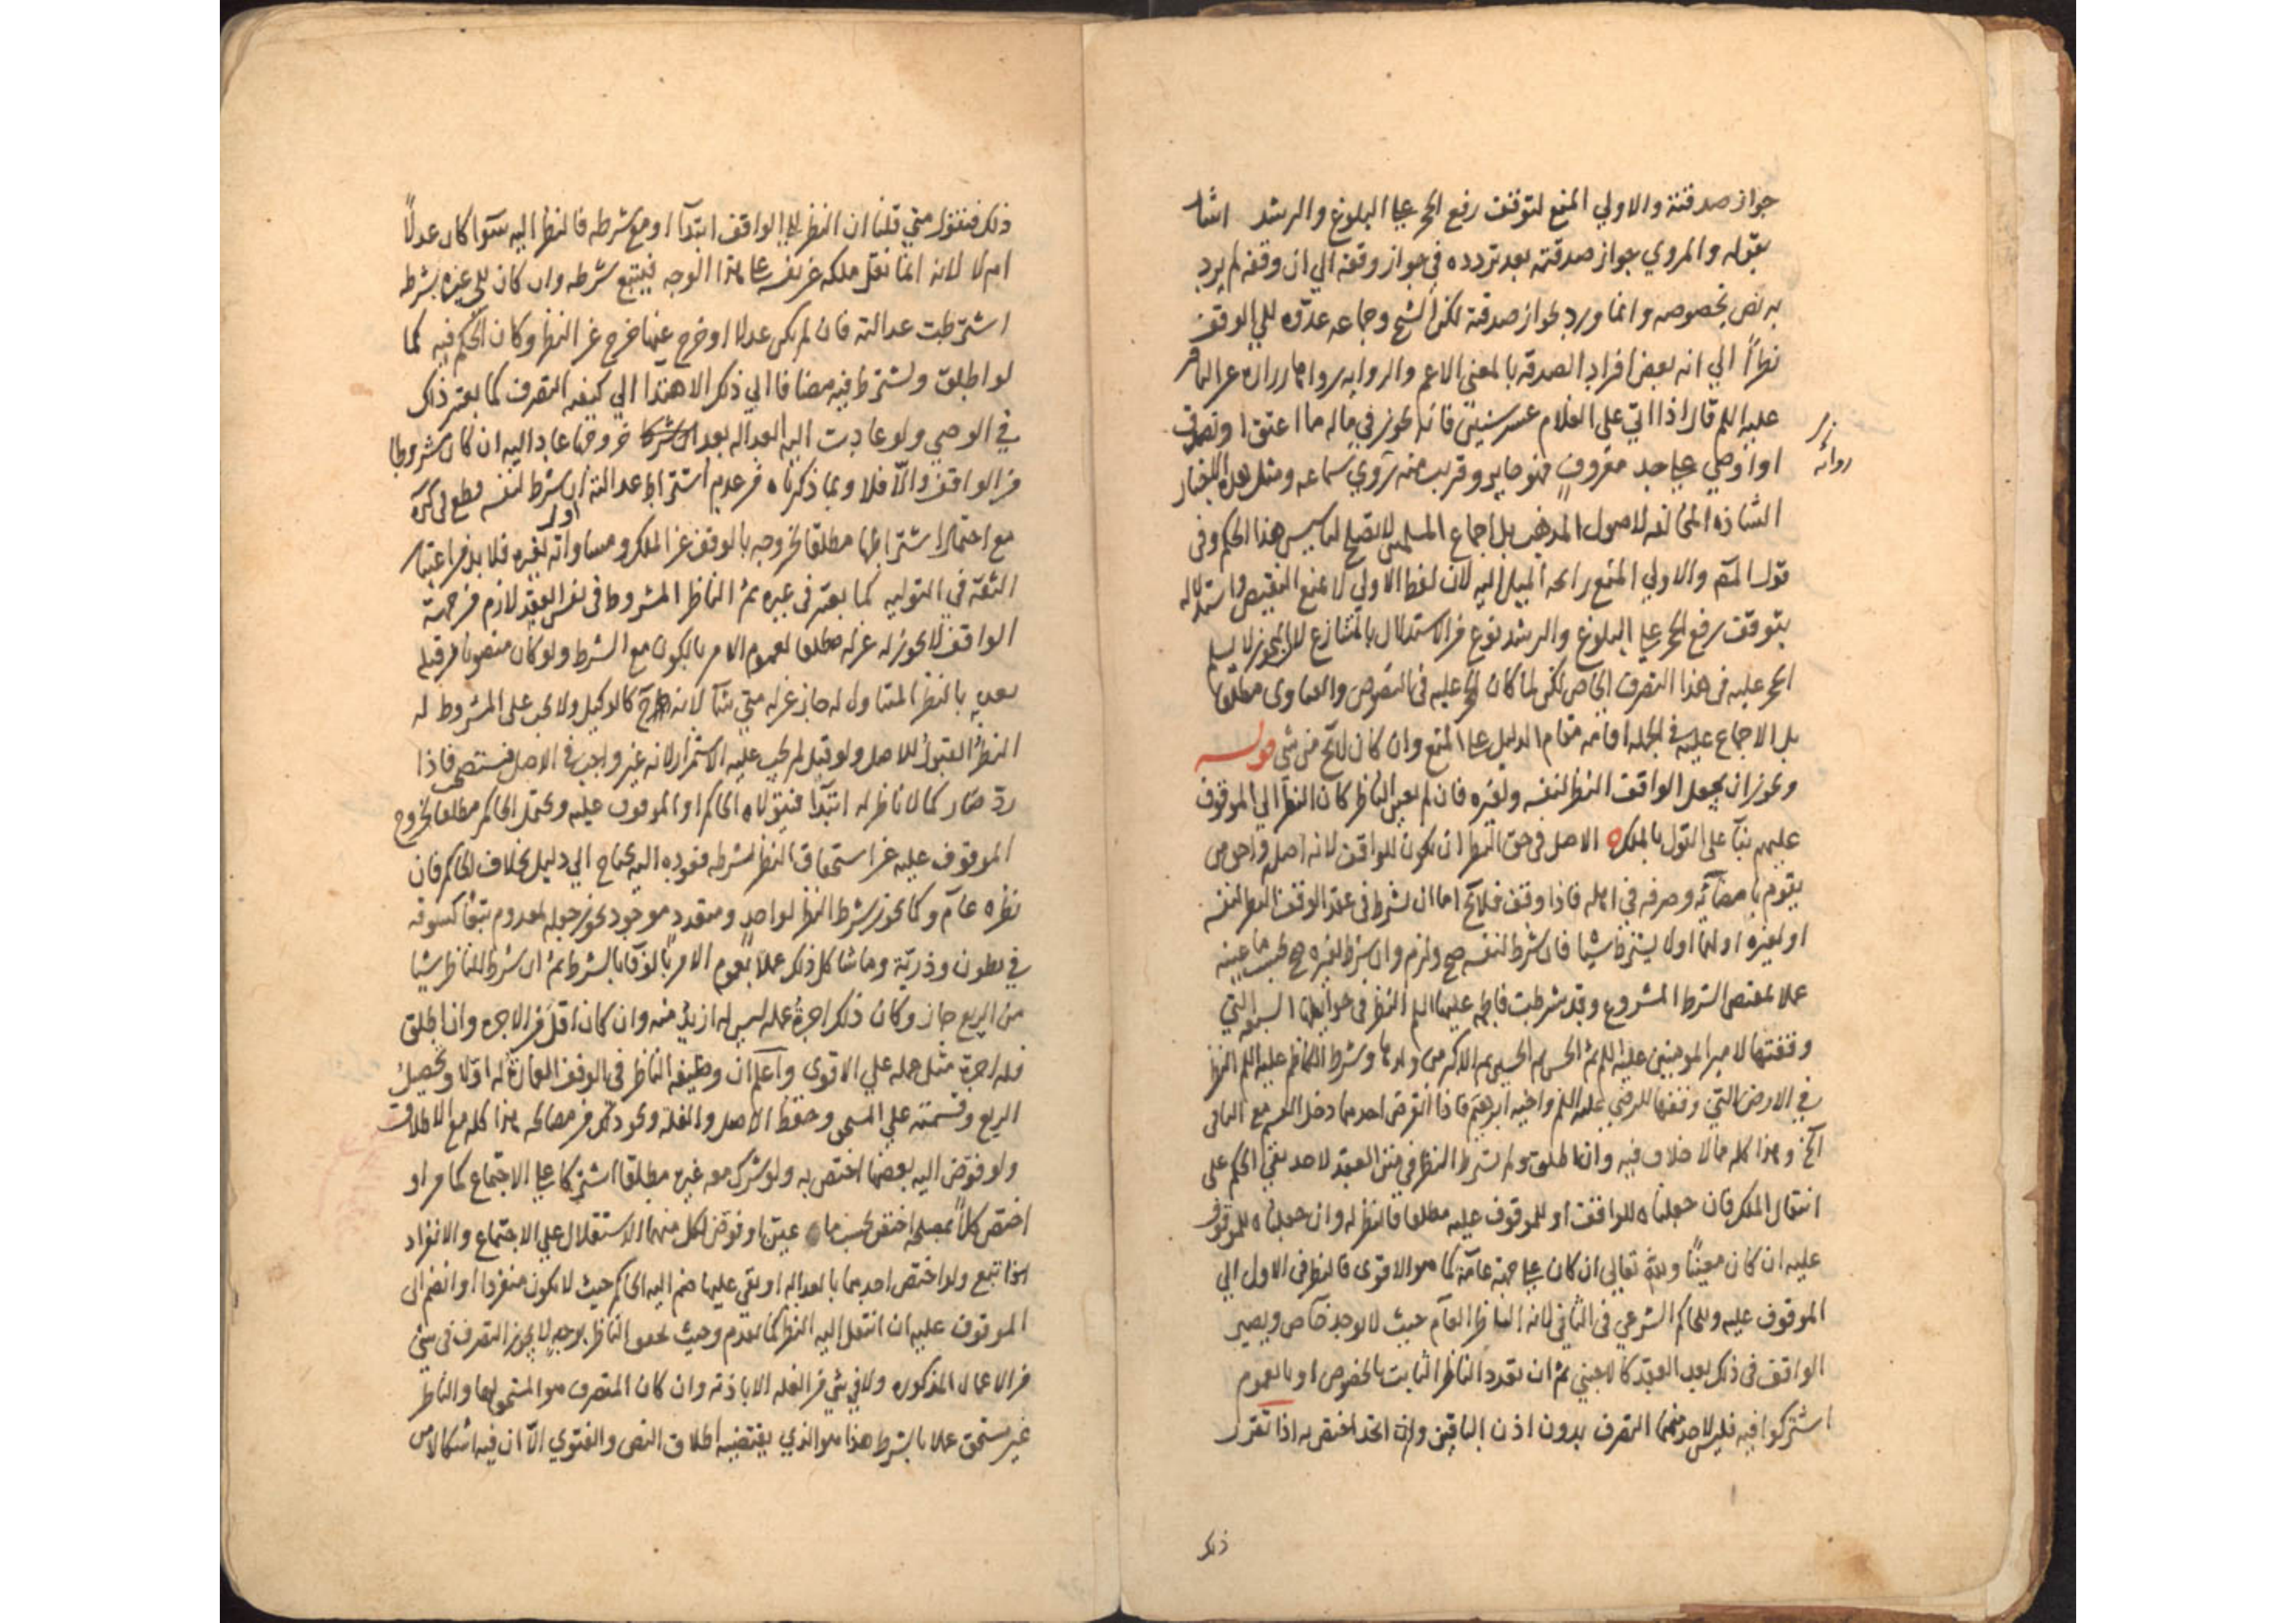 جواز صدقته والاولي المنع لتوقف رفع الحجر علي البلوغ والرشد اشار
بقوله والمروي جواز صدقته بعد تردده في جواز وقفه الي ان وقفه لم يرد
به نص بخصوصه وانما ورد بجواز صدقته لكن الشيخ وجماعه عدّوه للي الوقف
نظراً الي انه بعض افراد الصدقه بالمعني الاعم والروايه رواها زراره عن الباقر
عليه السلم قال اذا اتي علي الغلام عشر سنين فانه يجوز في ماله ما اعتق او تصدق
زر
رواية
او اوصي علي حد معروف فهو جايز وقريب منه روي سماعه ومثل هذه الاخبار
الشاذه المخالفه لاصول المذهب بل اجماع المسلمين لا تصلح لتاسيس هذا الحكم وفي
قول المصّ والاولي المنع رايحه الميل اليه لان لفظ الاولي لا يمنع النقيض واستدلاله
بتوقف رفع الحجر علي البلوغ والرشد نوع من الاستدلال بالمتنازع لان المجوز لا يسلم
الحجر عليه في هذا التصرف الخاص لكن لما كان الحجر عليه في النصوص والفتاوى مطلقا
بل الاجماع عليه في الجمله اقامه مقام الدليل علي المنع وان كان لا يخ من شي قوله
ويجوز ان يجعل الواقف النظر لنفسه ولغيره فان لم يعين الناظر كان النظر الي الموقوف
عليهم بنآ على القول بالملك ه الاصل في حق النظر ان يكون للواقف لانه اصله واحق من
يقوم بامضائه وصرفه في اهله فاذا وقف فلا يخ اما ان يشرط في عقد الوقف النظر لنفسه
او لغيره او لهما او لا يشترط شيا فان شرط لنفسه صح ولزم وان شرط لغيره صح بحسب ما عينه
عملا بمقتضى الشرط المشروع وقد شرطت فاطمه عليها السلم النظر في حوايطها السبعه التي
وقفتها لامير المومنين عليه السلم ثم الحسن ثم الحسين ثم الاكبر من ولدها وشرط الكاظم عليه السلم النظر
في الارض التي وقفها للرضي عليه السلم واخيه ابرهيم فاذا انقرض احدهما دخل القسم مع الباقي
آلخ وهذا كله مما لا خلاف فيه وان اطلق ولم يشرط النظر في متن العقد لاحد بني الحكم على
انتقال الملك فان جعلناه للواقف او للموقوف عليه مطلقا فالنظر له وان جعلناه للموقوف
عليه ان كان معيناً ولله تعالي ان كان علي جهة عامّة كما هو الاقوى فالنظر في الاول الي
الموقوف عليه وللحاكم الشرعي في الثاني لانه الناظر العآم حيث لا يوجد خآص ويصير
الواقف في ذلك بعد العقد كالاجنبي ثم ان تعدد الناظر الثابت بالخصوص او بالعموم
اشتركوا فيه فليس لاحد منهما التصرف بدون اذن الباقين وان اتحد اختص به اذا تقرر
ذلك
ذلك فنقول متي قلنا ان النظر للي الواقف ابتدآ او مع شرطه فالنظر اليه سوآ كان عدلاً
ام لا لانه انما نقل ملكه عن نفسه علي هذا الوجه فيتبع شرطه وان كان للي غيره بشرطه
اشترطت عدالته فان لم يكن عدلا او خرج عنها خرج عن النظر وكان الحكم فيه كما
لو اطلق ويشترط فيه مضافا الي ذلك الاهتدا الي كيفيه التصرف كما يعتبر ذلك
في الوصي ولو عادت اليه العداله بعد خروجها عاد اليه ان كان مشروطا
من الواقف والّا فلا وبما ذكرناه من عدم اشتراط عدالته ان شرط لنفسه قطع في كره
مع احتمال اشتراطها مطلقا لخروجه بالوقف عن الملك ومساواته لغيره فلا بد من اعتبار
الثقة في التوليه كما يعتبر في غيره ثم الناظر المشروط في نفس العقد لازم من جهة
الواقف لا يجوز له عزله مطلقا لعموم الامر بالكون مع الشرط ولو كان منصوبا من قبله
بعده بالنظر المتناول له جاز عزله متي شآ لانه ح كالوكيل ولا يجب على المشروط له
النظر القبول للاصل ولو قبل لم يجب عليه الاستمرار لانه غير واجب في الاصل فيستصحب فاذا
ردّ صار كما لا ناظر له ابتدآ فيتولاه الحاكم او الموقوف عليه ويحتمل الحاكم مطلقا لخروج
الموقوف عليه عن استحقاق النظر لشرطه فعوده اليه يحتاج الي دليل بخلاف الحاكم فان
نظره عآم وكما يجوز شرط النظر لواحد ومتعدد موجود يجوز جعله لمعدوم تبعا كسوقه
في بطون وذريّة وما شاكل ذلك عملاً بعموم الامر بالوفآ بالشرط ثم ان شرط للناظر شيا
من الريع جاز وكان ذلك اجرة عمله ليس له ازيد منه وان كان اقل من الاجره وان اطلق
فله اجرة مثل عمله علي الاقوى واعلم ان وظيفه الناظر في الوقف العمارة له اولا وتحصيل
الريع وقسمته علي المستحق وحفظ الاصل والغله ونحو ذلك من مصالحه هذا كله مع الاطلاق
ولو فوّض اليه بعضها اختص به ولو شرك معه غيره مطلقا اشتركا علي الاجتماع كما مر او
اختص كلاً بمصلحه اختص بحسب ما عيّن او فوّض لكل منهما الاستقلال علي الاجتماع والانفراد
اتبع ولو اختص احدهما بالعداله او بقي عليها ضم اليه الحاكم حيث لا يكون منفردا او انضم الى
الموقوف عليه ان انتقل اليه النظر كما تقدم وحيث تحقق الناظر بوجهٍ لا يجوز التصرف في شي
من الاعمال المذكوره ولا في شي من الغله الا باذنه وان كان المتصرف هو المستحق لها والناظر
غير مستحق عملا بالشرط هذا هو الذي يقتضيه اطلاق النص والفتوي الّا ان فيه اشكالا من